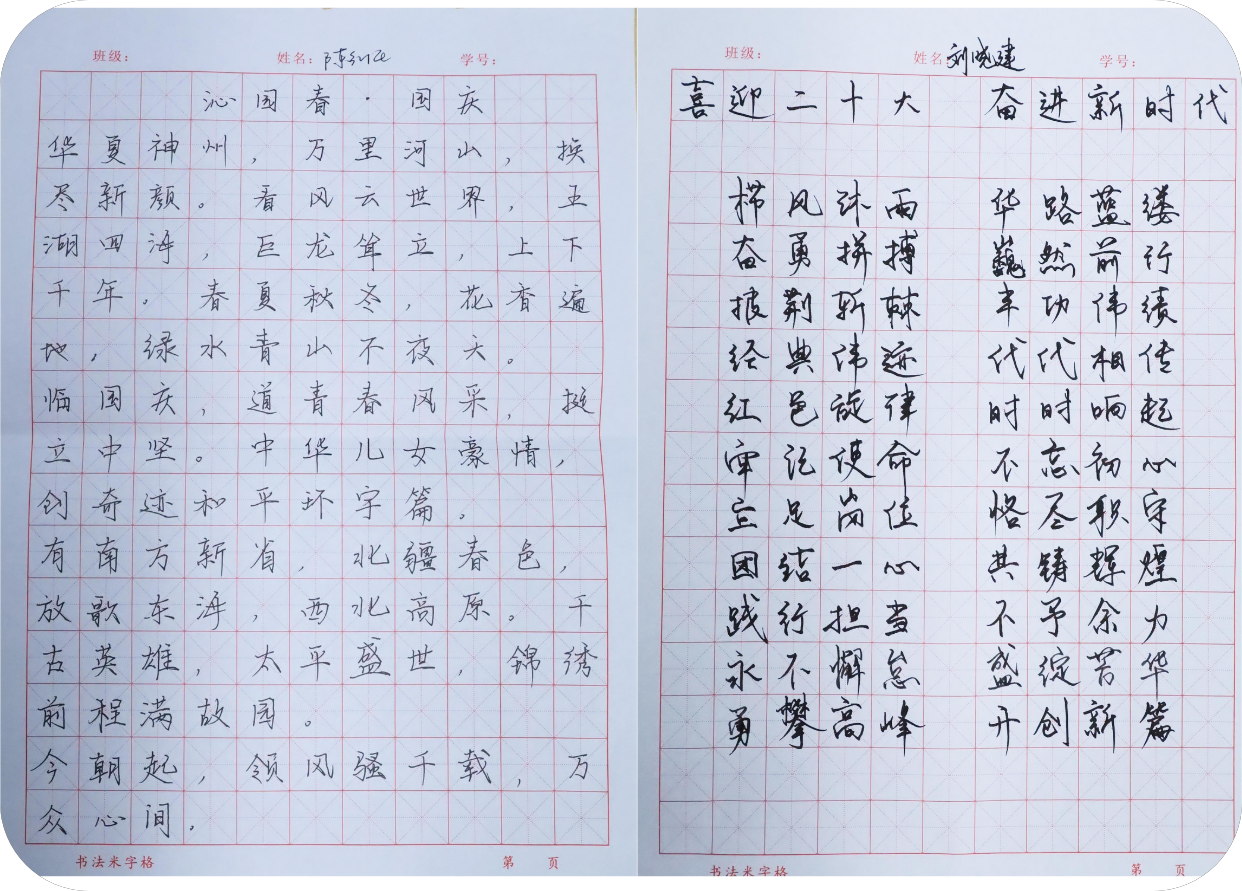 班级：　姓名：　学号：
沁园春·国庆
华夏神州，万里河山，换
尽新颜。看风云世界，五
湖四海，巨龙耸立，上下
千年。春夏秋冬，花香遍
地，绿水青山不夜天。
临国庆，道青春风采，挺
立中坚。中华儿女豪情，
创奇迹和平环宇篇。
有南方新省，北疆春色，
放歌东海，西北高原。千
古英雄，太平盛世，锦绣
前程满故园。
今朝起，领风骚千载，万
众心间。
书法米字格　第　页
班级：　姓名：刘晓建　学号：
喜迎二十大　奋进新时代
栉风沐雨　华路蓝缕
奋勇拼搏　巍然前行
披荆斩棘　丰功伟绩
经典伟迹　代代相传
红色旋律　时时响起
牢记使命　不忘初心
立足岗位　恪尽职守
团结一心　共铸辉煌
践行担当　不予余力
永不懈怠　盛绽芳华
勇攀高峰　开创新篇
书法米字格　第　页